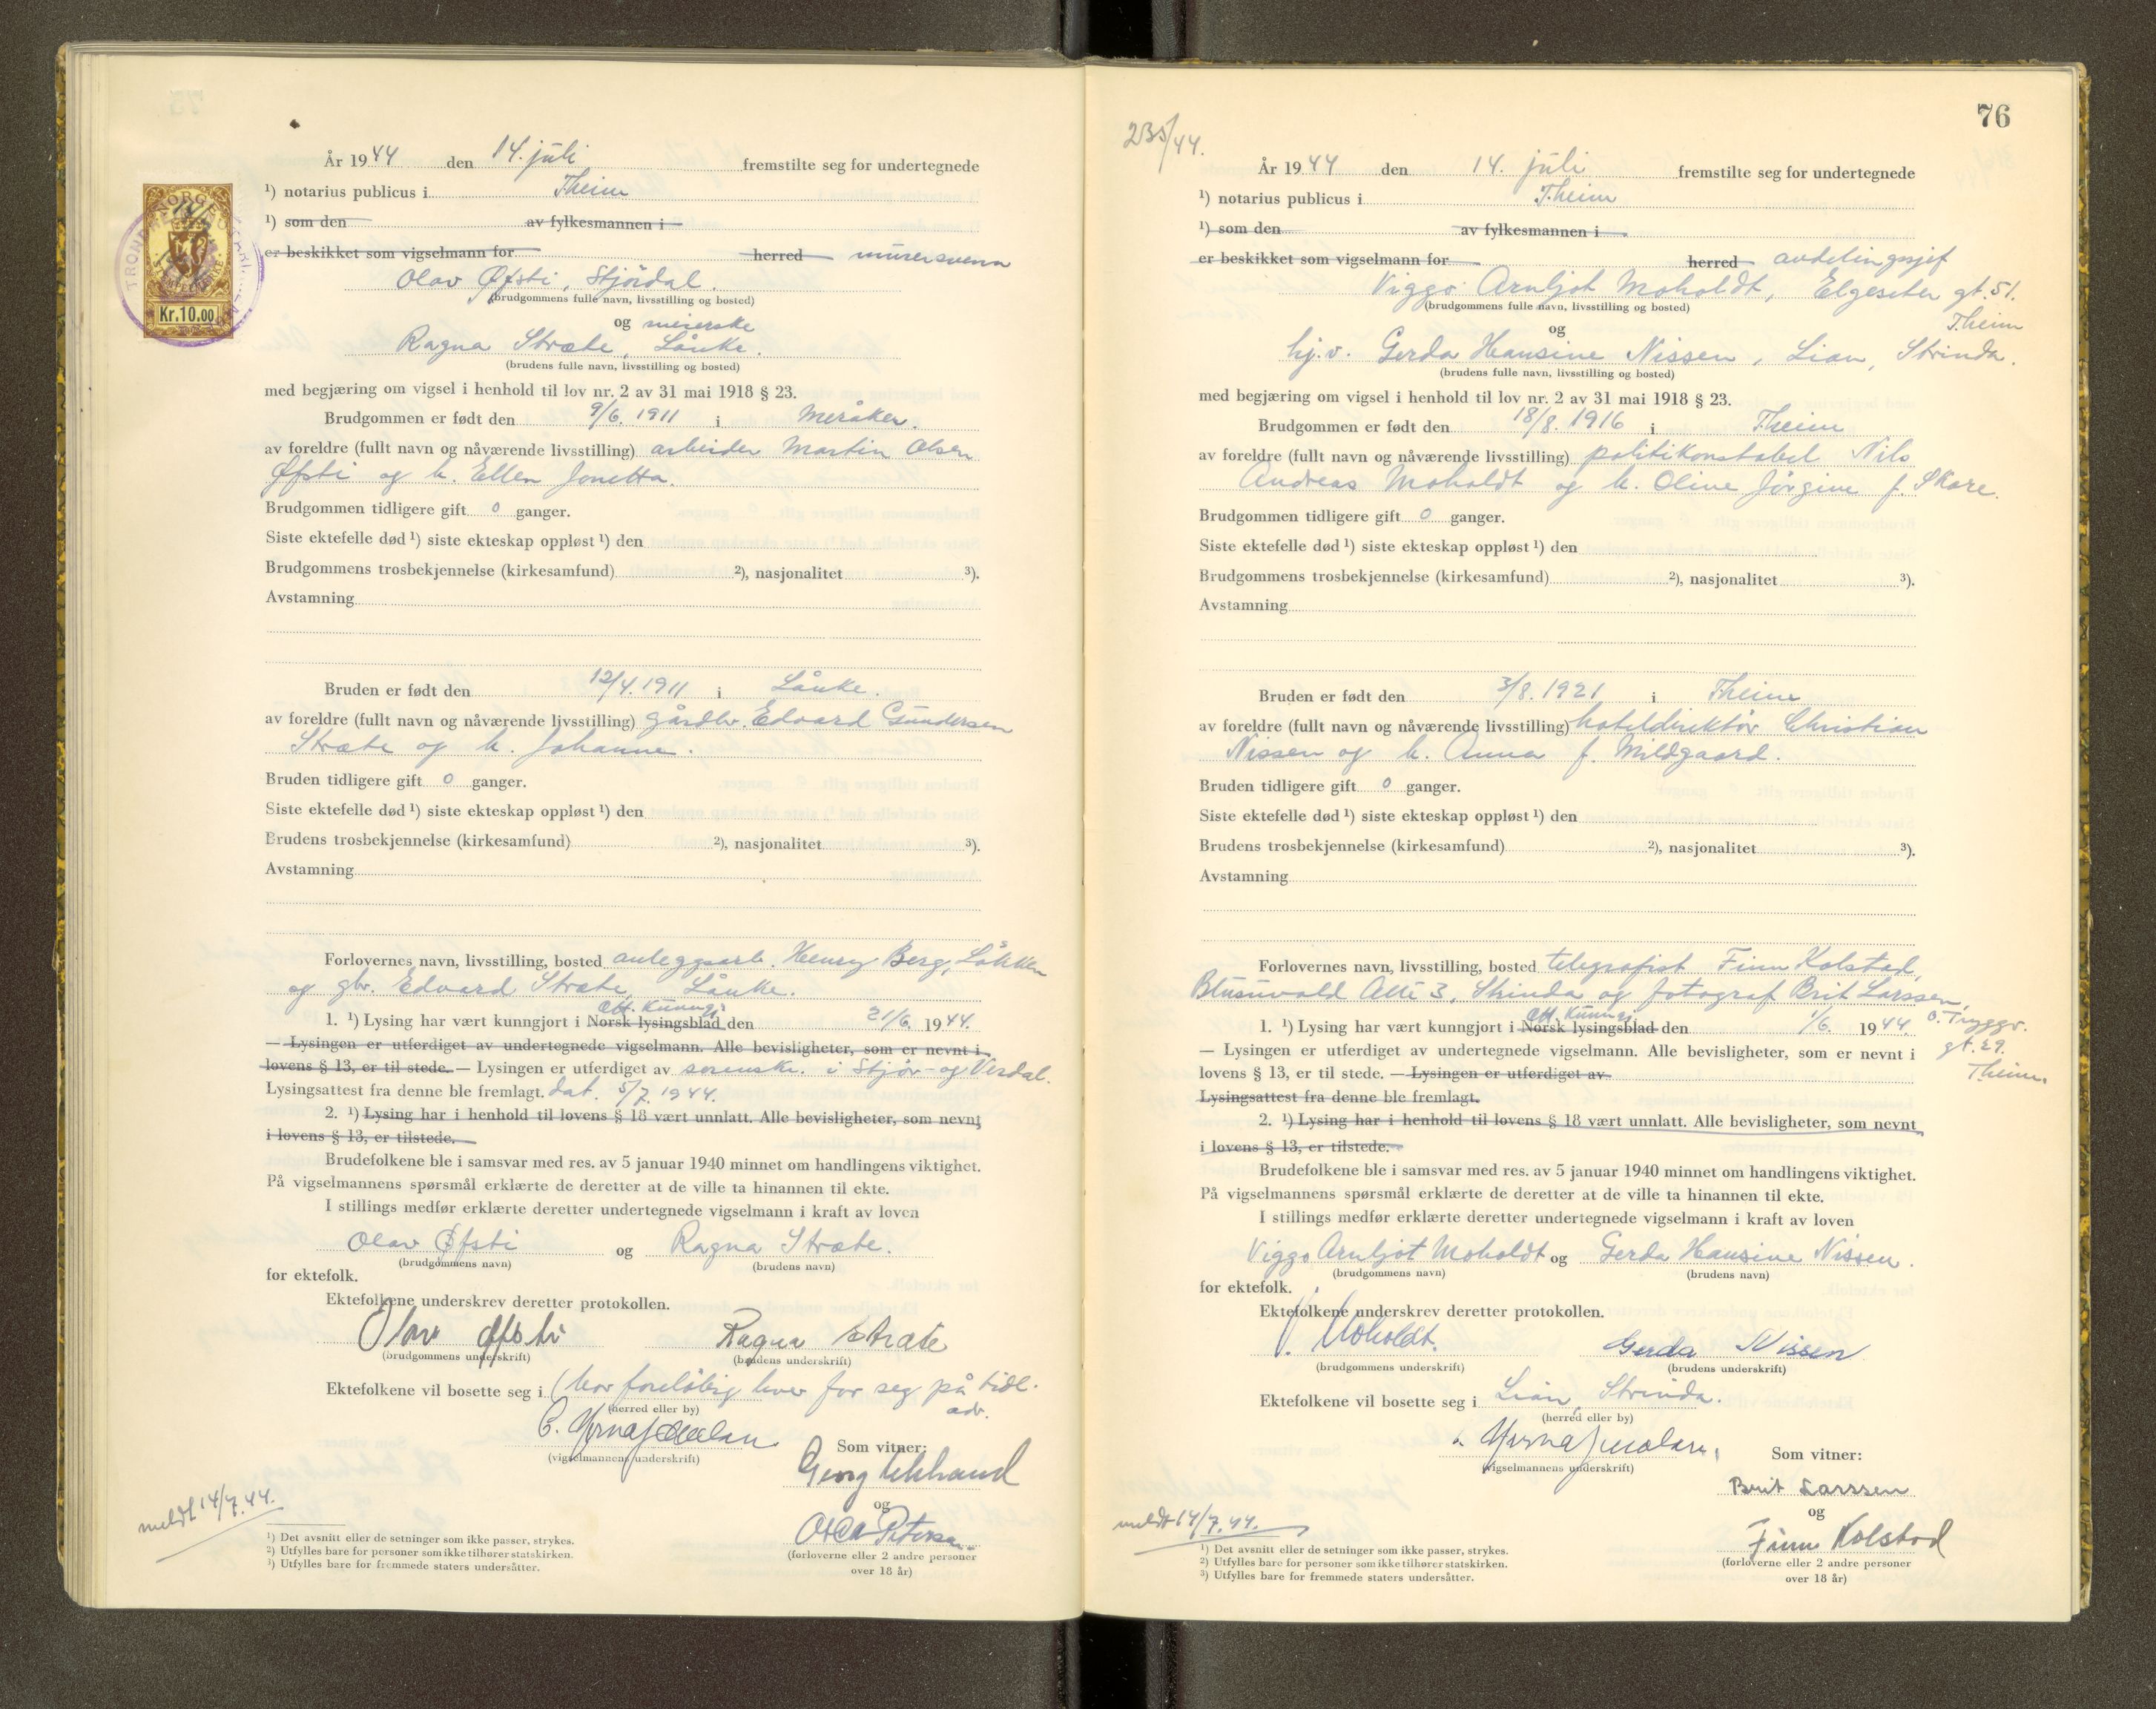 År 1944 den 14. juli fremstilte seg for undertegnede
¹) notarius publicus i Theim
¹) som den av fylkesmannen i
er beskikket som vigselmann for herred murersvenn
Olav Øfsti, Stjördal.
(brudgommens fulle navn, livsstilling og bosted)
og meierske
Ragna Stræte, Lånke.
(brudens fulle navn, livsstilling og bosted)
med begjæring om vigsel i henhold til lov nr. 2 av 31 mai 1918 § 23.
Brudgommen er født den 9/6. 1911 i Meråker.
av foreldre (fullt navn og nåværende livsstilling) arbeider Martin Olsen
Øfsti og h. Ellen Jonetta.
Brudgommen tidligere gift 0 ganger.
Siste ektefelle død ¹) siste ekteskap oppløst ¹) den
Brudgommens trosbekjennelse (kirkesamfund) ²), nasjonalitet ³).
Avstamning
Bruden er født den 12/4. 1911 i Lånke.
av foreldre (fullt navn og nåværende livsstilling) gårdbr. Edvard Gundersen
Stræte og h. Johanne.
Bruden tidligere gift 0 ganger.
Siste ektefelle død ¹) siste ekteskap oppløst ¹) den
Brudens trosbekjennelse (kirkesamfund) ²), nasjonalitet ³).
Avstamning
Forlovernes navn, livsstilling, bosted anleggsarb. Henry Berg, Løkken
og gbr. Edvard Stræte, Lånke.
Off. Kunngj.
1. ¹) Lysing har vært kunngjort i Norsk lysingsblad den 21/6. 1944.
— Lysingen er utferdiget av undertegnede vigselmann. Alle bevisligheter, som er nevnt i
lovens § 13, er til stede. — Lysingen er utferdiget av sorenskr. i Stjør- og Verdal.
Lysingsattest fra denne ble fremlagt. dat. 5/7. 1944.
2. ¹) Lysing har i henhold til lovens § 18 vært unnlatt. Alle bevisligheter, som nevnt
i lovens § 13, er tilstede.
Brudefolkene ble i samsvar med res. av 5 januar 1940 minnet om handlingens viktighet.
På vigselmannens spørsmål erklærte de deretter at de ville ta hinannen til ekte.
I stillings medfør erklærte deretter undertegnede vigselmann i kraft av loven
Olav Øfsti og Ragna Stræte.
(brudgommens navn) (brudens navn)
for ektefolk.
Ektefolkene underskrev deretter protokollen.
Olav Øfsti Ragna Stræte
(brudgommens underskrift) (brudens underskrift)
Ektefolkene vil bosette seg i (bor foreløbig hver for seg på tidl.
adr.
(herred eller by)
(vigselmannens underskrift)
Som vitner:
Georg
og
(forloverne eller 2 andre personer
over 18 år)
meldt 14/7.44.
¹) Det avsnitt eller de setninger som ikke passer, strykes.
²) Utfylles bare for personer som ikke tilhører statskirken.
³) Utfylles bare for fremmede staters undersåtter.
NORGE
Kr.10.00
76
235/44.
År 1944 den 14. juli fremstilte seg for undertegnede
¹) notarius publicus i T.heim
¹) som den av fylkesmannen i
er beskikket som vigselmann for herred avdelingssjef
Viggo Arnljot Moholdt, Elgeseter gt. 51.
T.heim
(brudgommens fulle navn, livsstilling og bosted)
og
hj.v. Gerda Hansine Nissen, Lian, Strinda.
(brudens fulle navn, livsstilling og bosted)
med begjæring om vigsel i henhold til lov nr. 2 av 31 mai 1918 § 23.
Brudgommen er født den 18/8. 1916 i T.heim
av foreldre (fullt navn og nåværende livsstilling) politikonstabel Nils
Andreas Moholdt og h. Oline Jørgine f. Skare.
Brudgommen tidligere gift 0 ganger.
Siste ektefelle død ¹) siste ekteskap oppløst ¹) den
Brudgommens trosbekjennelse (kirkesamfund) ²), nasjonalitet ³).
Avstamning
Bruden er født den 3/8. 1921 i T.heim
av foreldre (fullt navn og nåværende livsstilling) hotelldirektør Christian
Nissen og h. Anna f. Mildgaard.
Bruden tidligere gift 0 ganger.
Siste ektefelle død ¹) siste ekteskap oppløst ¹) den
Brudens trosbekjennelse (kirkesamfund) ²), nasjonalitet ³).
Avstamning
Forlovernes navn, livsstilling, bosted telegrafist Finn Kolstad,
Blusuvold Allé 3, Strinda og fotograf Brit Larssen,
O. Tryggv.
gt. 29.
T.heim.
Off. Kunngj.
1. ¹) Lysing har vært kunngjort i Norsk lysingsblad den 1/6. 1944.
— Lysingen er utferdiget av undertegnede vigselmann. Alle bevisligheter, som er nevnt i
lovens § 13, er til stede. — Lysingen er utferdiget av
Lysingsattest fra denne ble fremlagt.
2. ¹) Lysing har i henhold til lovens § 18 vært unnlatt. Alle bevisligheter, som nevnt
i lovens § 13, er tilstede.
Brudefolkene ble i samsvar med res. av 5 januar 1940 minnet om handlingens viktighet.
På vigselmannens spørsmål erklærte de deretter at de ville ta hinannen til ekte.
I stillings medfør erklærte deretter undertegnede vigselmann i kraft av loven
Viggo Arnljot Moholdt og Gerda Hansine Nissen.
(brudgommens navn) (brudens navn)
for ektefolk.
Ektefolkene underskrev deretter protokollen.
V. Moholdt. Gerda Nissen
(brudgommens underskrift) (brudens underskrift)
Ektefolkene vil bosette seg i Lian, Strinda.
(herred eller by)
(vigselmannens underskrift)
Som vitner:
Brit Larssen
og
Finn Kolstad
(forloverne eller 2 andre personer
over 18 år)
meldt 14/7.44.
¹) Det avsnitt eller de setninger som ikke passer, strykes.
²) Utfylles bare for personer som ikke tilhører statskirken.
³) Utfylles bare for fremmede staters undersåtter.